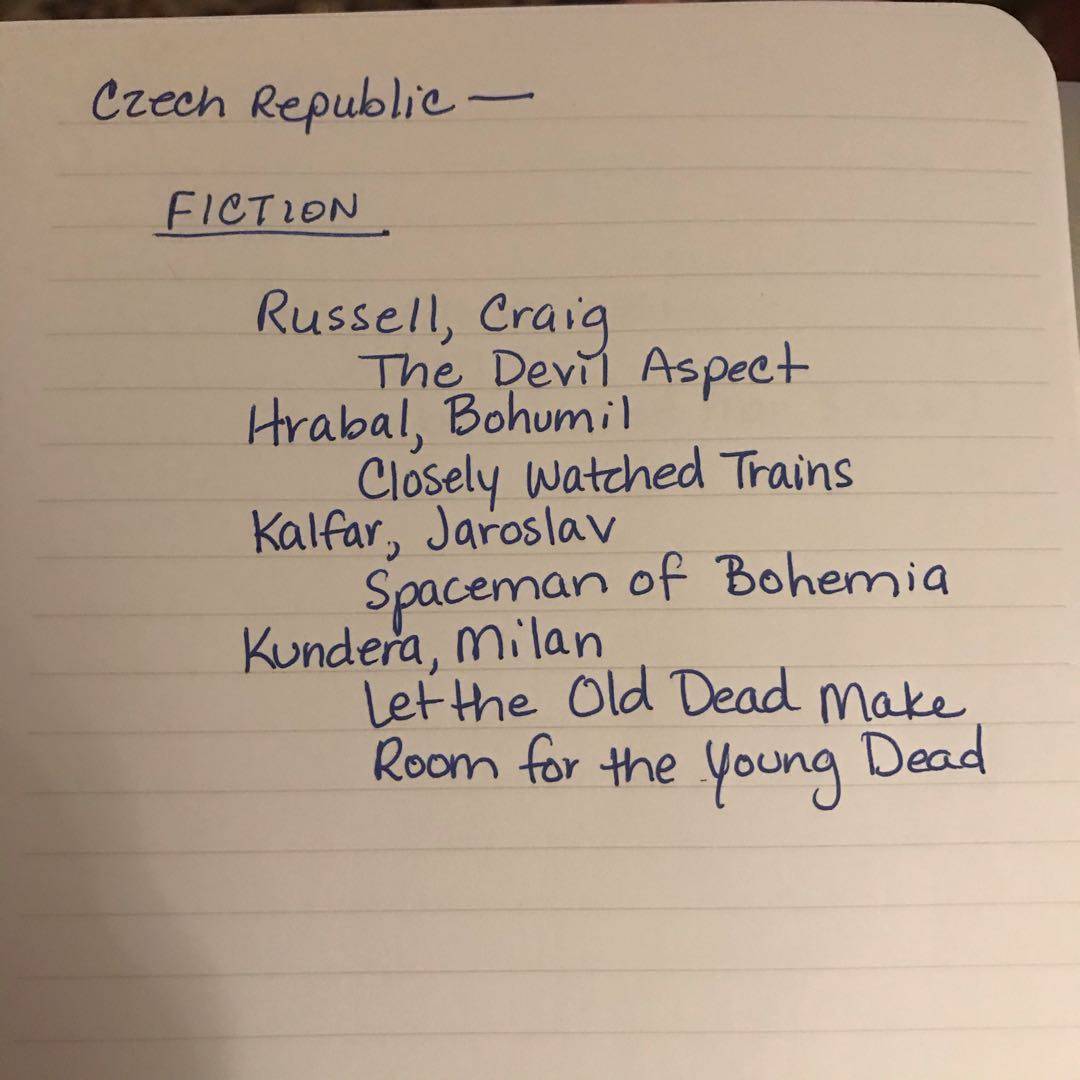 Czech Republic —
FICTION
Russell, Craig
The Devil Aspect
Hrabal, Bohumil
Closely Watched Trains
Kalfar, Jaroslav
Spaceman of Bohemia
Kundera, Milan
Let the Old Dead Make
Room for the Young Dead